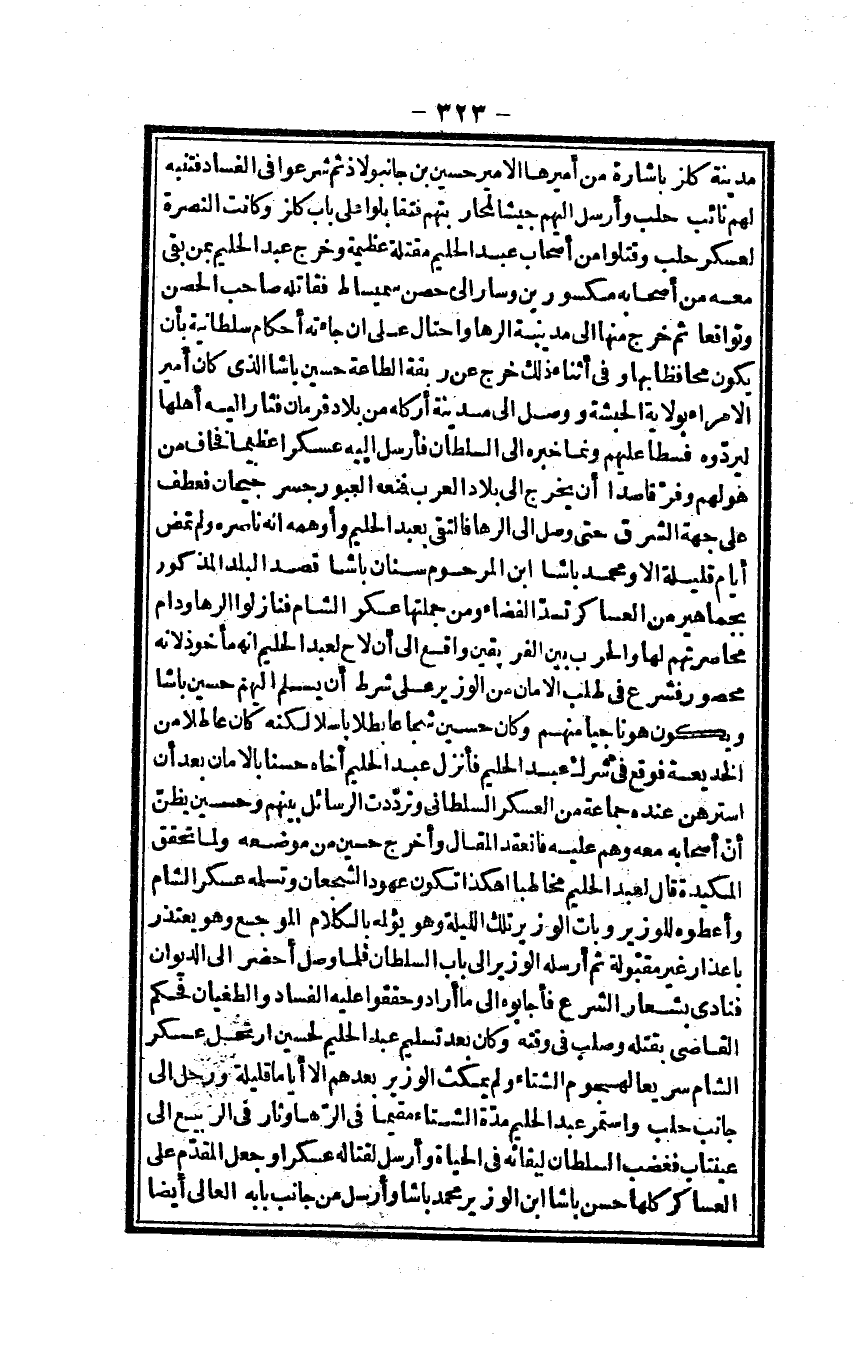 - ٣٢٣ -
مدينة كلز باشارة من أميرها الامير حسين بن جانبولاذ ثم شرعوا فى الفساد فتنبه
لهم نائب حلب وأرسل اليهم جيشا لمحاربتهم فتقابلوا على باب كلز وكانت النصرة
لعسكر حلب وقتلوا من أصحاب عبد الحليم مقتلة عظيمة وخرج عبد الحليم بمن بقى
معه من أصحابه مكسورين وسار الى حصن سميساط فقاتله صاحب الحصن
وتواقعا ثم خرج منها الى مدينة الرها واحتال على ان جاءته أحكام سلطانية بأن
يكون محافظا بها وفى أثناء ذلك خرج عن ربقة الطاعة حسين باشا الذى كان أمير
الامراء بولاية الحبشة ووصل الى مدينة أركاه من بلاد قرمان فثار اليه أهلها
ليردّوه فسطا عليهم ونما خبره الى السلطان فأرسل اليه عسكرا عظيما فخاف من
هولهم وفرّ قاصدا أن يخرج الى بلاد العرب فمنعه العبور جسر جيحان فعطف
على جهة الشرق حتى وصل الى الرها فالتقى بعبد الحليم وأوهمه انه ناصره ولم تمض
أيام قليلة الا ومحمد باشا ابن المرحوم سنان باشا قصد البلد المذكور
بجماهير من العساكر تسدّ الفضاء ومن جملتها عسكر الشام فنازلوا الرها ودام
محاصرتهم لها والحرب بين الفريقين واقع الى أن لاح لعبد الحليم انه مأخوذ لانه
محصور فشرع فى طلب الامان من الوزير على شرط أن يسلم اليهم حسين باشا
ويكون هو ناجيا منهم وكان حسين شجاعا بطلا باسلا لكنه كان عاطلا من
الخديعة فوقع فى شرك عبد الحليم فأنزل عبد الحليم أخاه حسنا بالامان بعد أن
استرهن عنده جماعة من العسكر السلطانى وتردّدت الرسائل بينهم وحسين يظنّ
أنّ أصحابه معه وهم عليه فانعقد المقال وأخرج حسين من موضعه ولما تحقق
المكيدة قال لعبد الحليم مخاطبا اهكذا تكون عهود الشجعان وتسلمه عسكر الشام
وأعطوه للوزير وبات الوزير تلك الليلة وهو يؤلمه بالكلام الموجع وهو يعتذر
باعذار غير مقبولة ثم أرسله الوزير الى باب السلطان فلما وصل أحضر الى الديوان
فنادى بشعار الشرع فأجابوه الى ما أراد وحققوا عليه الفساد والطغيان فحكم
القاضى بقتله وصلب فى وقته وكان بعد تسليم عبد الحليم لحسين ارتحل عسكر
الشام سريعا لهجوم الشتاء ولم يمكث الوزير بعدهم الا أياما قليلة ورحل الى
جانب حلب واستمر عبد الحليم مدّة الشتاء مقيما فى الرّها وثار فى الربيع الى
عينتاب فغضب السلطان لبقائه فى الحياة وأرسل لقتاله عسكرا وجعل المقدّم على
العساكر كلها حسن باشا ابن الوزير محمد باشا وأرسل من جانب بابه العالى أيضا